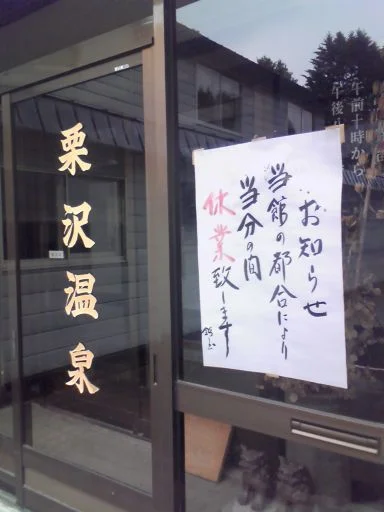 栗沢温泉
午前十時から
午後
お知らせ
当館の都合により
当分の間
休業致します